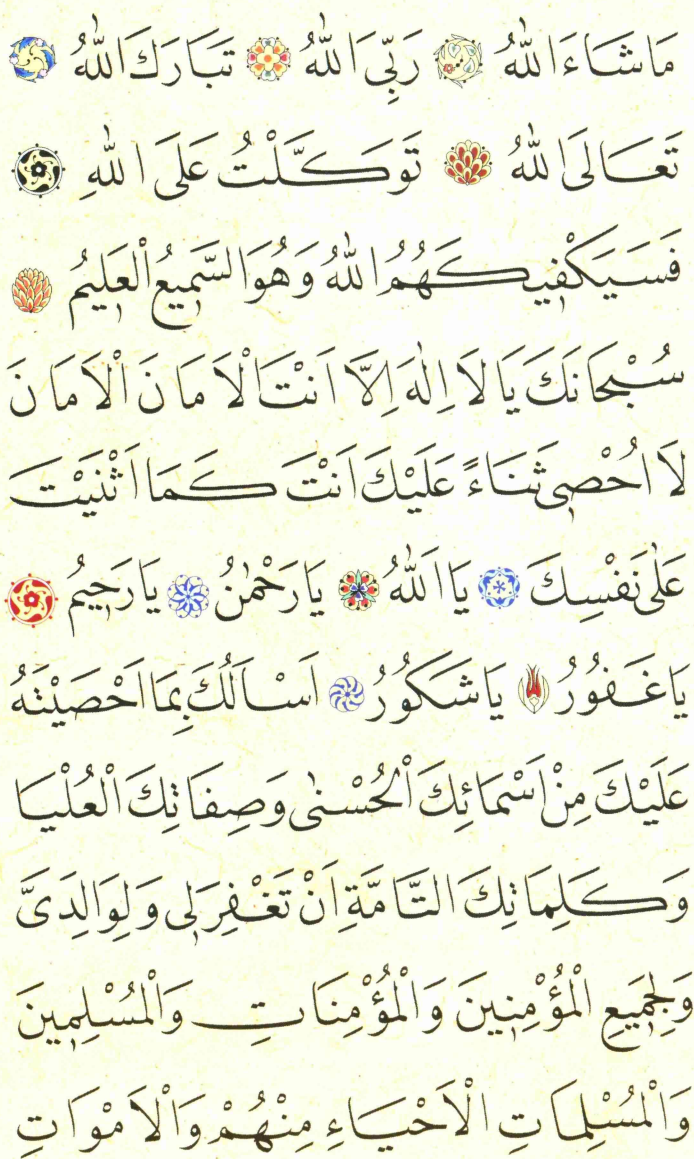 مَا شَاءَ اللّٰهُ رَبِّيَ اللّٰهُ تَبَارَكَ اللّٰهُ
تَعَالَى اللّٰهُ تَوَكَّلْتُ عَلَى اللّٰهِ
فَسَيَكْفِيكَهُمُ اللّٰهُ وَهُوَ السَّمِيعُ الْعَلِيمُ
سُبْحَانَكَ يَا لَا اِلٰهَ اِلَّا اَنْتَ الْاَمَانَ الْاَمَانَ
لَا اُحْصِى ثَنَاءً عَلَيْكَ اَنْتَ كَمَا اَثْنَيْتَ
عَلٰى نَفْسِكَ يَا اَللّٰهُ يَا رَحْمٰنُ يَا رَحِيمُ
يَا غَفُورُ يَا شَكُورُ اَسْاَلُكَ بِمَا اَحْصَيْتَهُ
عَلَيْكَ مِنْ اَسْمَائِكَ الْحُسْنٰى وَصِفَاتِكَ الْعُلْيَا
وَكَلِمَاتِكَ التَّامَّةِ اَنْ تَغْفِرَ لِى وَلِوَالِدَىَّ
وَلِجَمِيعِ الْمُؤْمِنِينَ وَالْمُؤْمِنَاتِ وَالْمُسْلِمِينَ
وَالْمُسْلِمَاتِ الْاَحْيَاءِ مِنْهُمْ وَالْاَمْوَاتِ